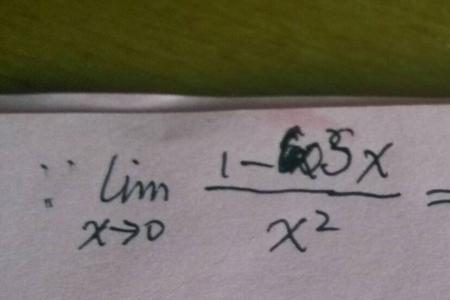 ∵ lim x→0 (1 - cos x) / x² =